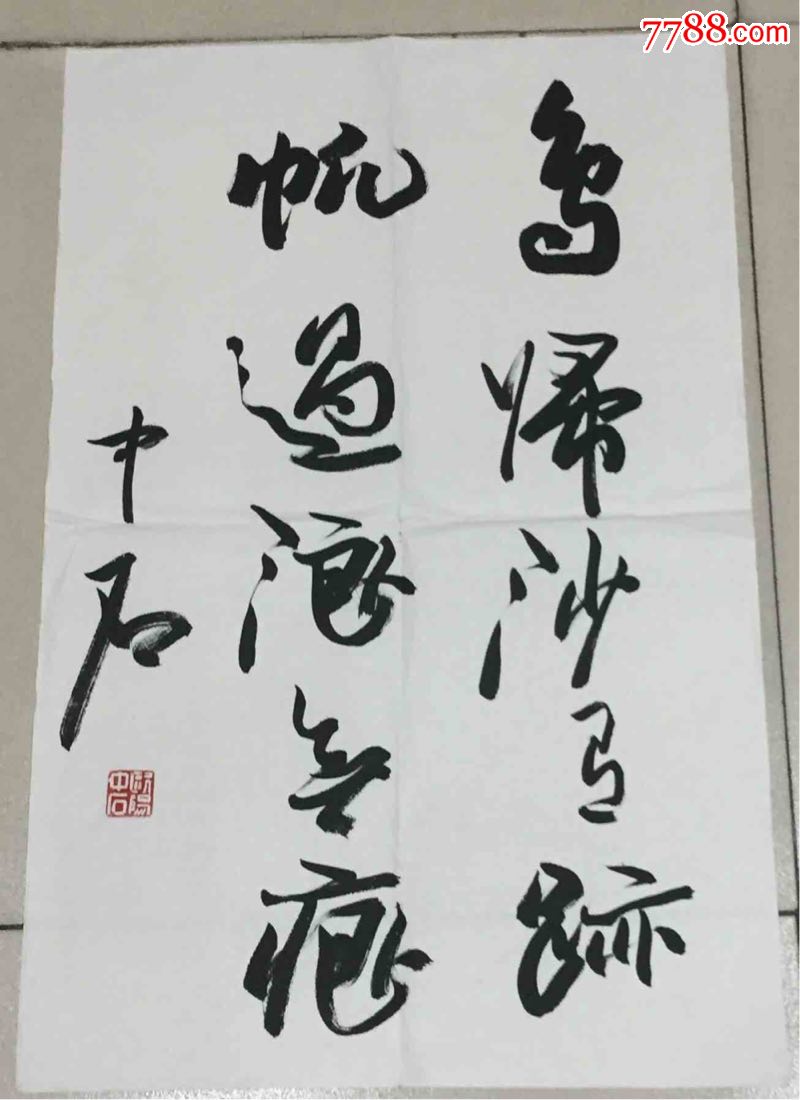 7788.com
鳥歸沙有跡
帆過浪無痕
中石
歐陽中石